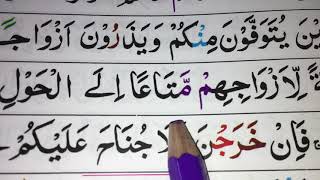 يْنَ يُتَوَفَّوْنَ مِنْكُمْ وَيَذَرُوْنَ اَزْوَاجً
ةً لِّاَزْوَاجِهِمْ مَّتَاعًا اِلَى الْحَوْلِ
فَاِنْ خَرَجْنَ لَا جُنَاحَ عَلَيْكُمْ